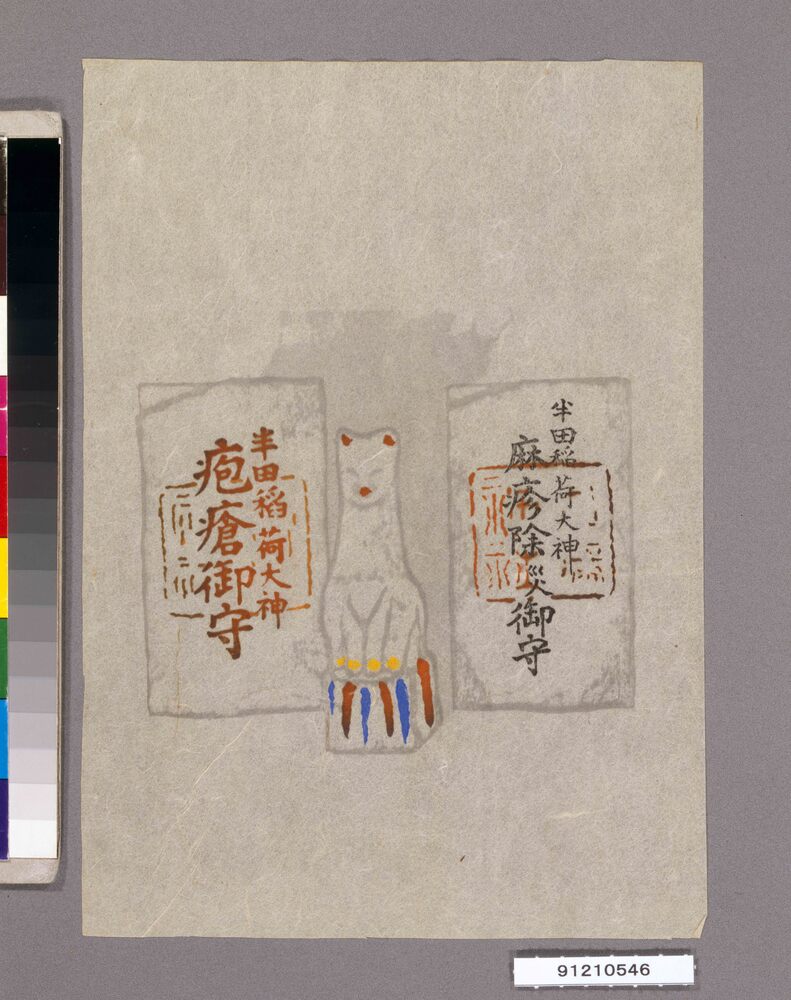 半田稲荷大神
麻疹除災御守
半田稲荷大神
疱瘡御守
91210546